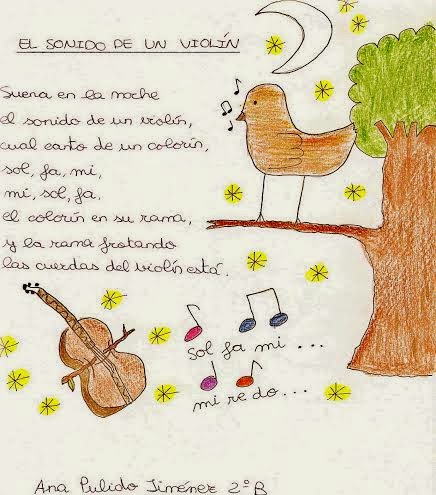 EL SONIDO DE UN VIOLÍN
Suena en la noche
el sonido de un violín,
cual canto de un colorín,
sol, fa, mi,
mi, sol, fa,
el colorín en su rama,
y la rama frotando
las cuerdas del violín está.
sol fa mi ...
mi re do...
Ana Pulido Jiménez 2º B